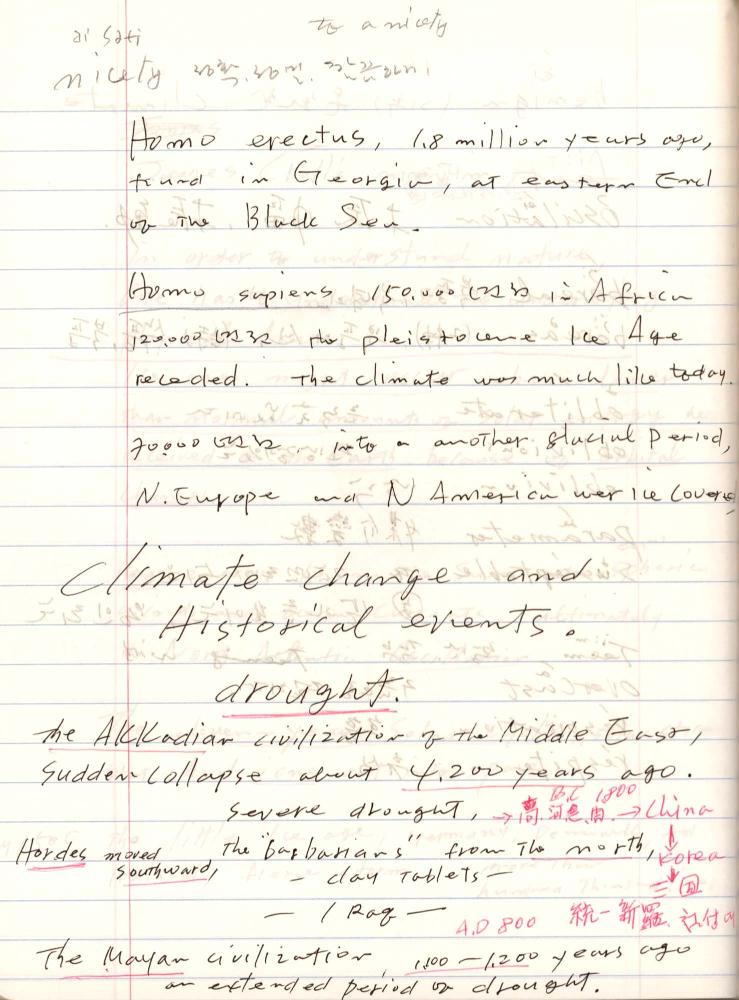 to a nicety
nicety
Homo erectus, 1.8 million years ago,
found in Georgia, at eastern End
of The Black Sea.
Homo sapiens 150.000 년전 in Africa
120.000 년전 the pleistocene Ice Age
receded. The climate was much like today.
70.000 년전. into a another glacial period,
N. Europe and N America wer ice covere
Climate change and
Historical events.
drought.
the AKKadian civilization of the Middle East,
Sudden collapse about 4.200 years ago.
B.C 1800
severe drought, → → China
Hordes moved The "barbarians" from The north, Korea
Southward, - clay Tablets - 三国
- IRaq -
A.D 800 統一新羅
The Mayan civilization, 1,100 - 1,200 years ago
an extended period of drought.